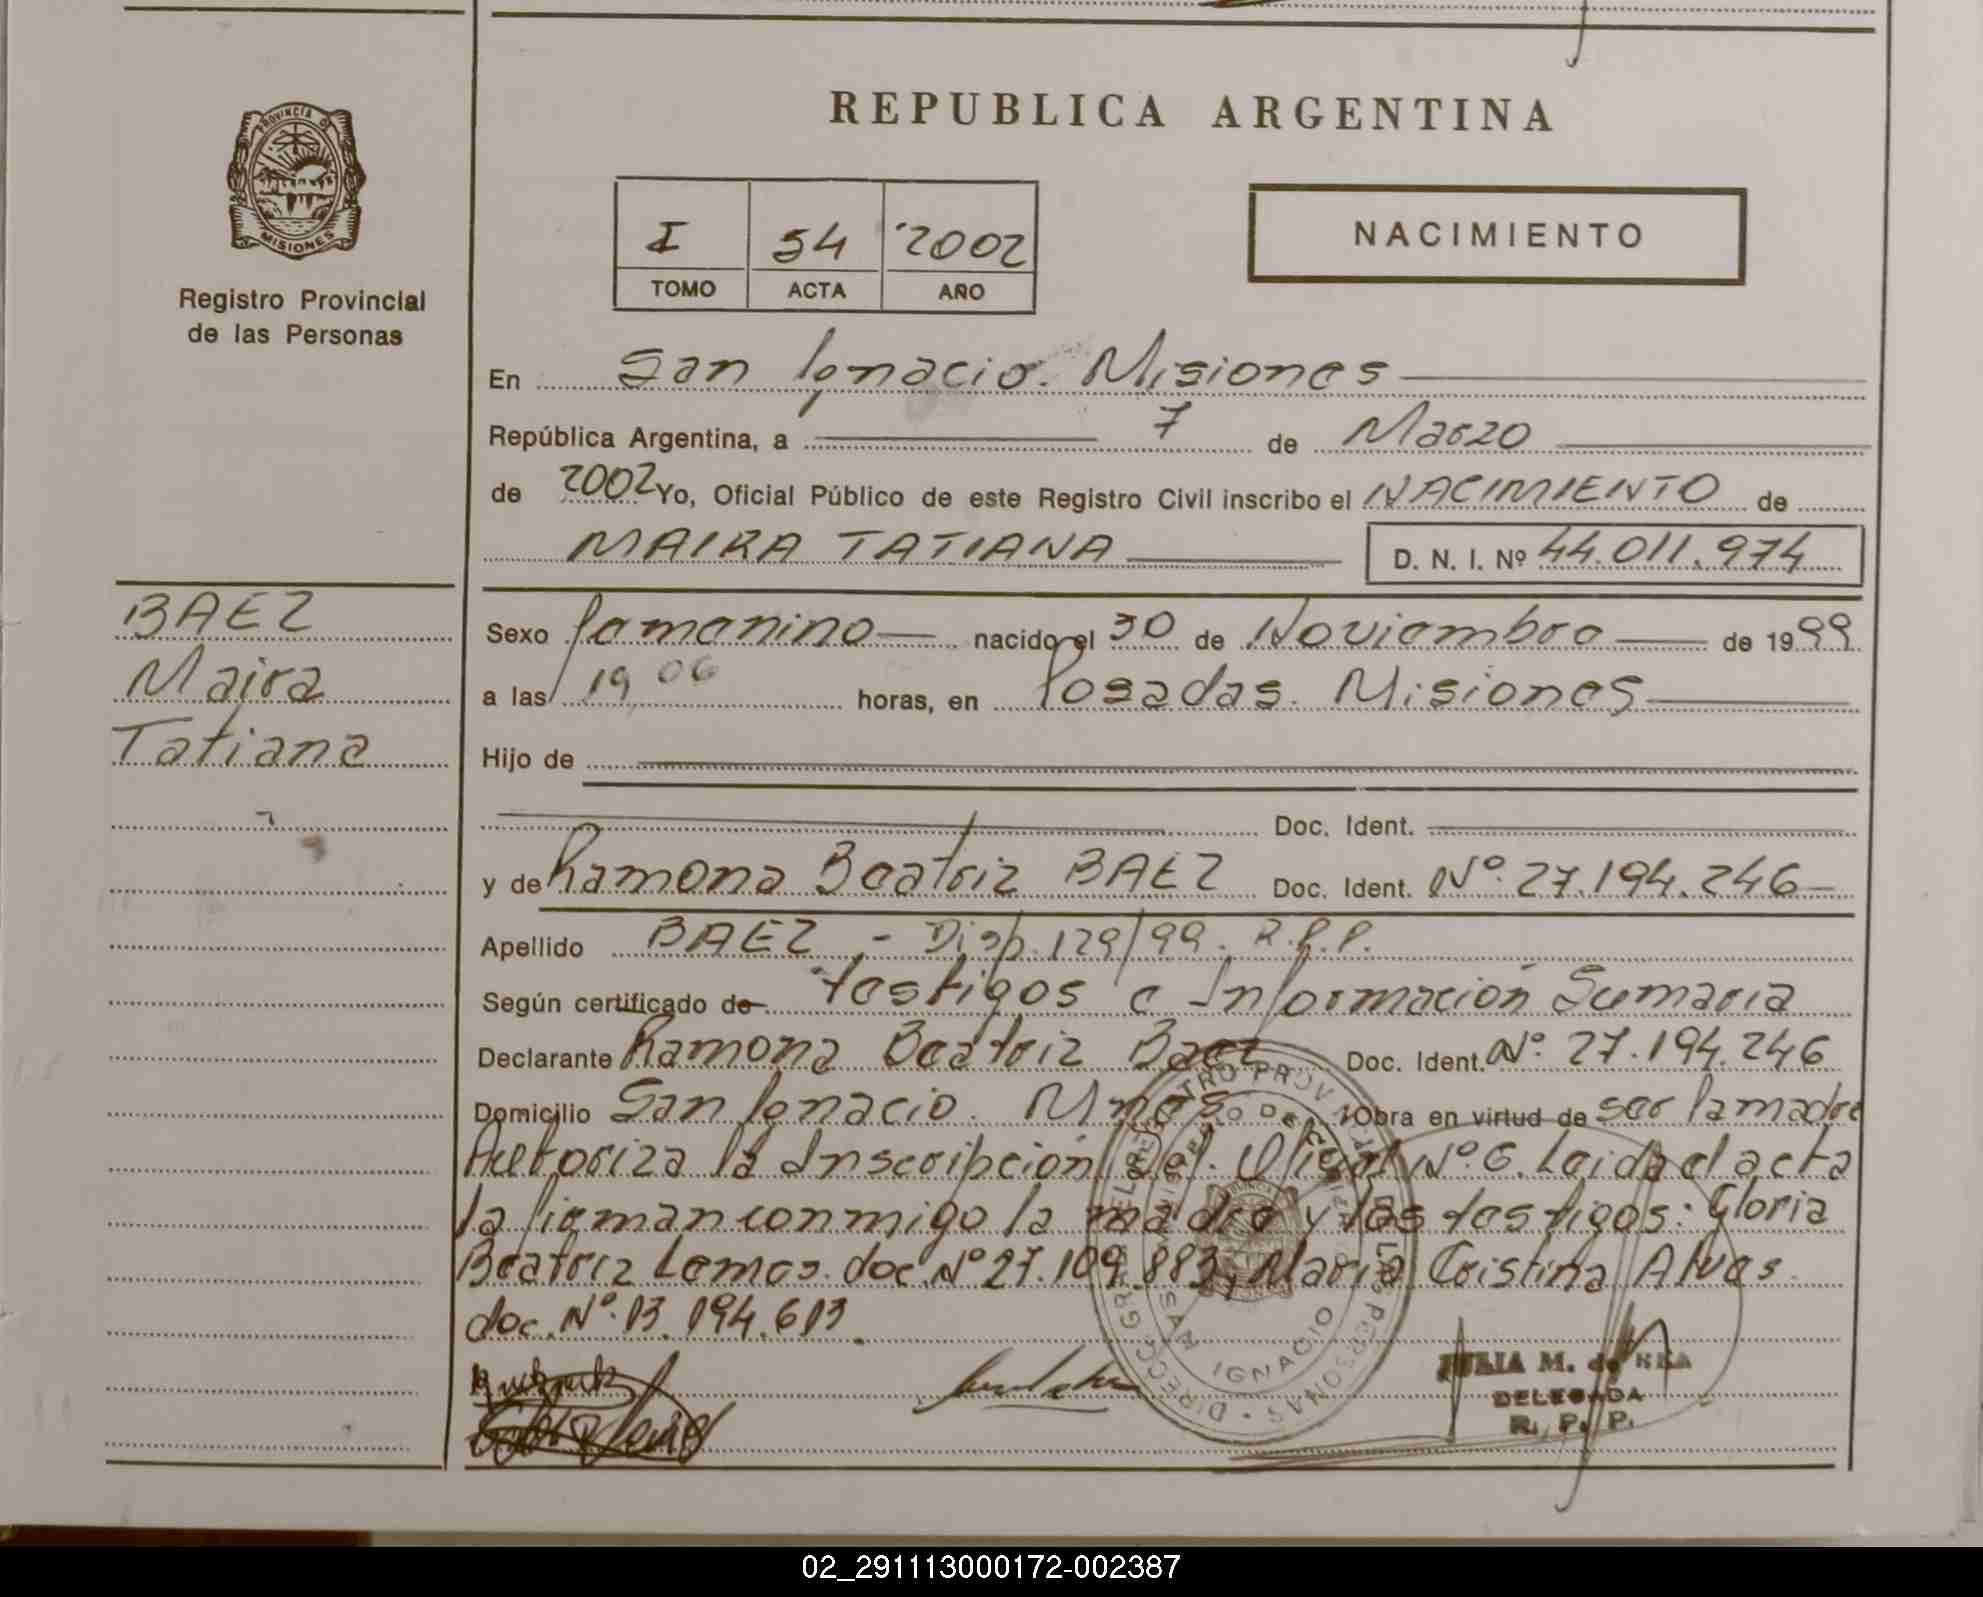 PROVINCIA DE
MISIONES
Registro Provincial
de las Personas
REPUBLICA ARGENTINA
I 54 2002
TOMO ACTA AÑO
NACIMIENTO
En San Ignacio. Misiones
República Argentina, a 7 de Marzo
de 2002 Yo, Oficial Público de este Registro Civil inscribo el NACIMIENTO de
MAIRA TATIANA D. N. I. Nº 44.011.974
BAEZ
Maira
Tatiana
Sexo femenino nacido el 30 de Noviembre de 1999
a las 19,06 horas, en Posadas. Misiones
Hijo de
Doc. Ident.
y de Ramona Beatriz BAEZ Doc. Ident. Nº 27.194.246
Apellido BAEZ - Disp. 129/99. R.P.P.
Según certificado de testigos e Información Sumaria
Declarante Ramona Beatriz Baez Doc. Ident. Nº 27.194.246
Domicilio San Ignacio. Mnes Obra en virtud de ser la madre
Autoriza la Inscripción Del. Nº 6. Leida el acta
la firman conmigo la madre y las testigos: Gloria
Beatriz Lemos. doc. Nº 27.109.883, Maria Cristina Alves.
doc. Nº 13.194.613.
SAN IGNACIO
JULIA M. de
DELEGADA
R. P. P.
02_291113000172-002387